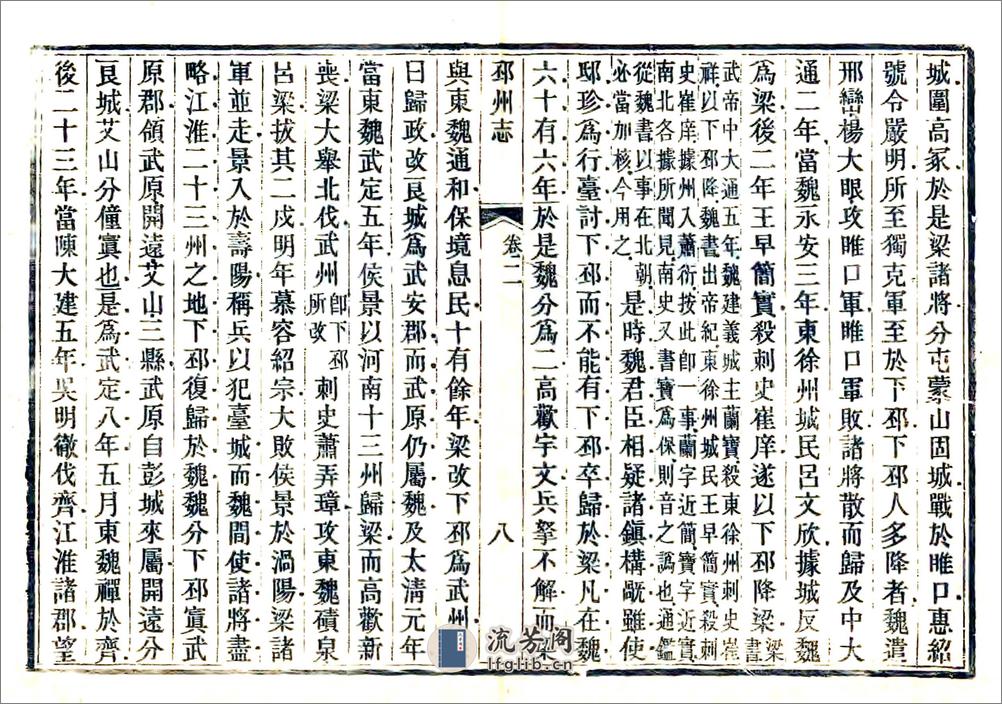 城圍高冢於是梁諸將分屯蒙山固城戰於睢口惠紹
號令嚴明所至獨克軍至於下邳下邳人多降者魏遣
邢巒楊大眼攻睢口軍睢口軍敗諸將散而歸及中大
通二年當魏永安三年東徐州城民呂文欣據城反魏
爲梁後二年王早簡實殺刺史崔庠遂以下邳降梁梁書
武帝中大通五年魏建義城主蘭寶殺東徐州刺史崔
祥以下邳降魏書出帝紀東徐州城民王早簡實殺刺
史崔庠據州入蕭衍按此卽一事蘭字近簡寶字近實
南北各據所聞見南史又書寶爲保則音之譌也通鑑
從魏書以事在北朝
必當加核今用之是時魏君臣相疑諸鎭構敵雖使
邸珍爲行臺討下邳而不能有下邳卒歸於梁凡在魏
六十有六年於是魏分爲二高歡宇文兵拏不解而梁
邳州志
卷二
八
與東魏通和保境息民十有餘年梁改下邳爲武州
曰歸政改艮城爲武安郡而武原仍屬魏及太淸元年
當東魏武定五年侯景以河南十三州歸梁而高歡新
喪梁大舉北伐武州卽下邳所改刺史蕭弄璋攻東魏磧泉
呂梁拔其二戍明年慕容紹宗大敗侯景於渦陽梁諸
軍並走景入於壽陽稱兵以犯臺城而魏間使諸將盡
略江淮二十三州之地下邳復歸於魏魏分下邳寘武
原郡領武原開遠艾山三縣武原自彭城來屬開遠分
艮城艾山分僮寘也是爲武定八年五月東魏禪於齊
後二十三年當陳大建五年吳明徹伐齊江淮諸郡望
流芳阁
lfglib.cn